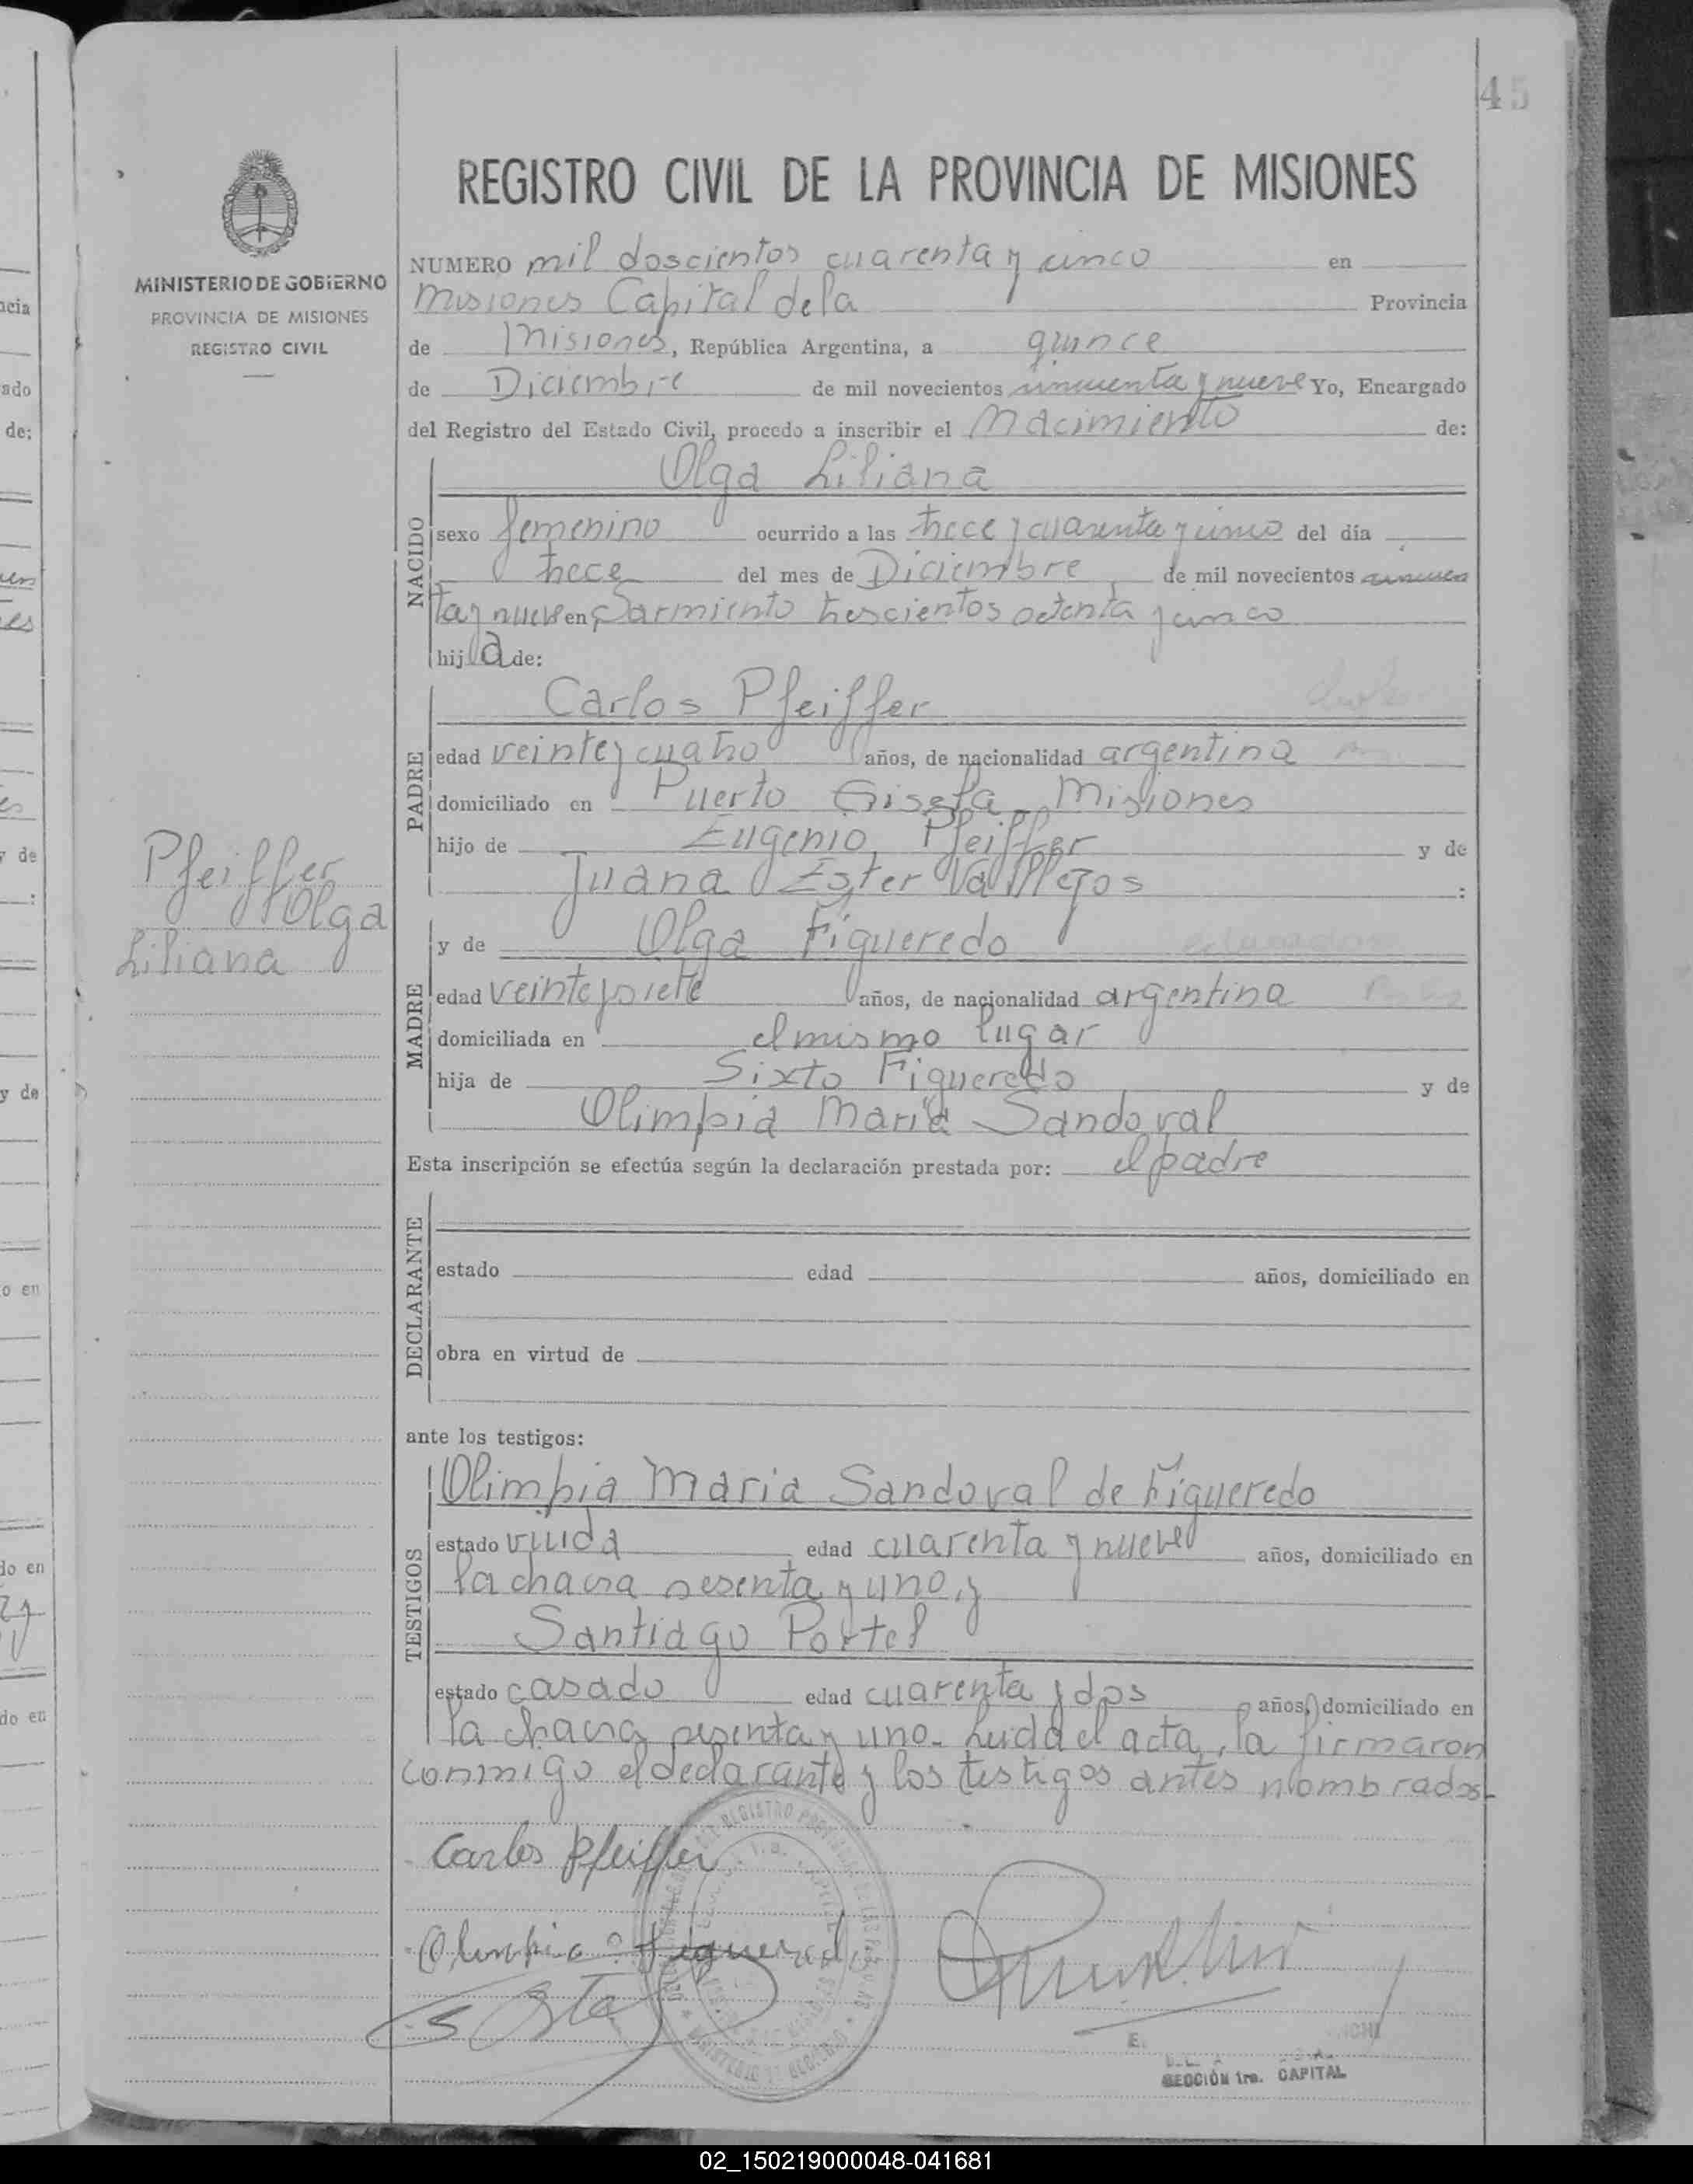 45
REGISTRO CIVIL DE LA PROVINCIA DE MISIONES
MINISTERIO DE GOBIERNO
PROVINCIA DE MISIONES
REGISTRO CIVIL
NUMERO mil doscientos cuarenta y cinco en
Misiones Capital de la Provincia
de Misiones, República Argentina, a quince
de Diciembre de mil novecientos cincuenta y nueve Yo, Encargado
del Registro del Estado Civil, procedo a inscribir el Nacimiento de:
Olga Liliana
NACIDO
sexo femenino ocurrido a las trece y cuarenta y cinco del día
trece del mes de Diciembre de mil novecientos cincuen
ta y nueve en Sarmiento trescientos ochenta y cinco
hija de:
Carlos Pfeiffer
PADRE
edad veinte y cuatro años, de nacionalidad argentina
domiciliado en Puerto Gisela Misiones
hijo de Eugenio Pfeiffer y de
Juana Ester Vallejos :
Pfeiffer
Olga
Liliana
y de Olga Figueredo
MADRE
edad veinte y siete años, de nacionalidad argentina
domiciliada en el mismo lugar
hija de Sixto Figueredo y de
Olimpia Maria Sandoval
Esta inscripción se efectúa según la declaración prestada por: el padre
DECLARANTE
estado edad años, domiciliado en
obra en virtud de
ante los testigos:
Olimpia Maria Sandoval de Figueredo
TESTIGOS
estado viuda edad cuarenta y nueve años, domiciliado en
la chacra sesenta y uno y
Santiago Portel
estado casado edad cuarenta y dos años, domiciliado en
la chacra sesenta y uno. Leida el acta, la firmaron
conmigo el declarante y los testigos antes nombrados-
Carlos Pfeiffer
Olimpia Figueredo
SECCIÓN 1ra. CAPITAL
02_150219000048-041681